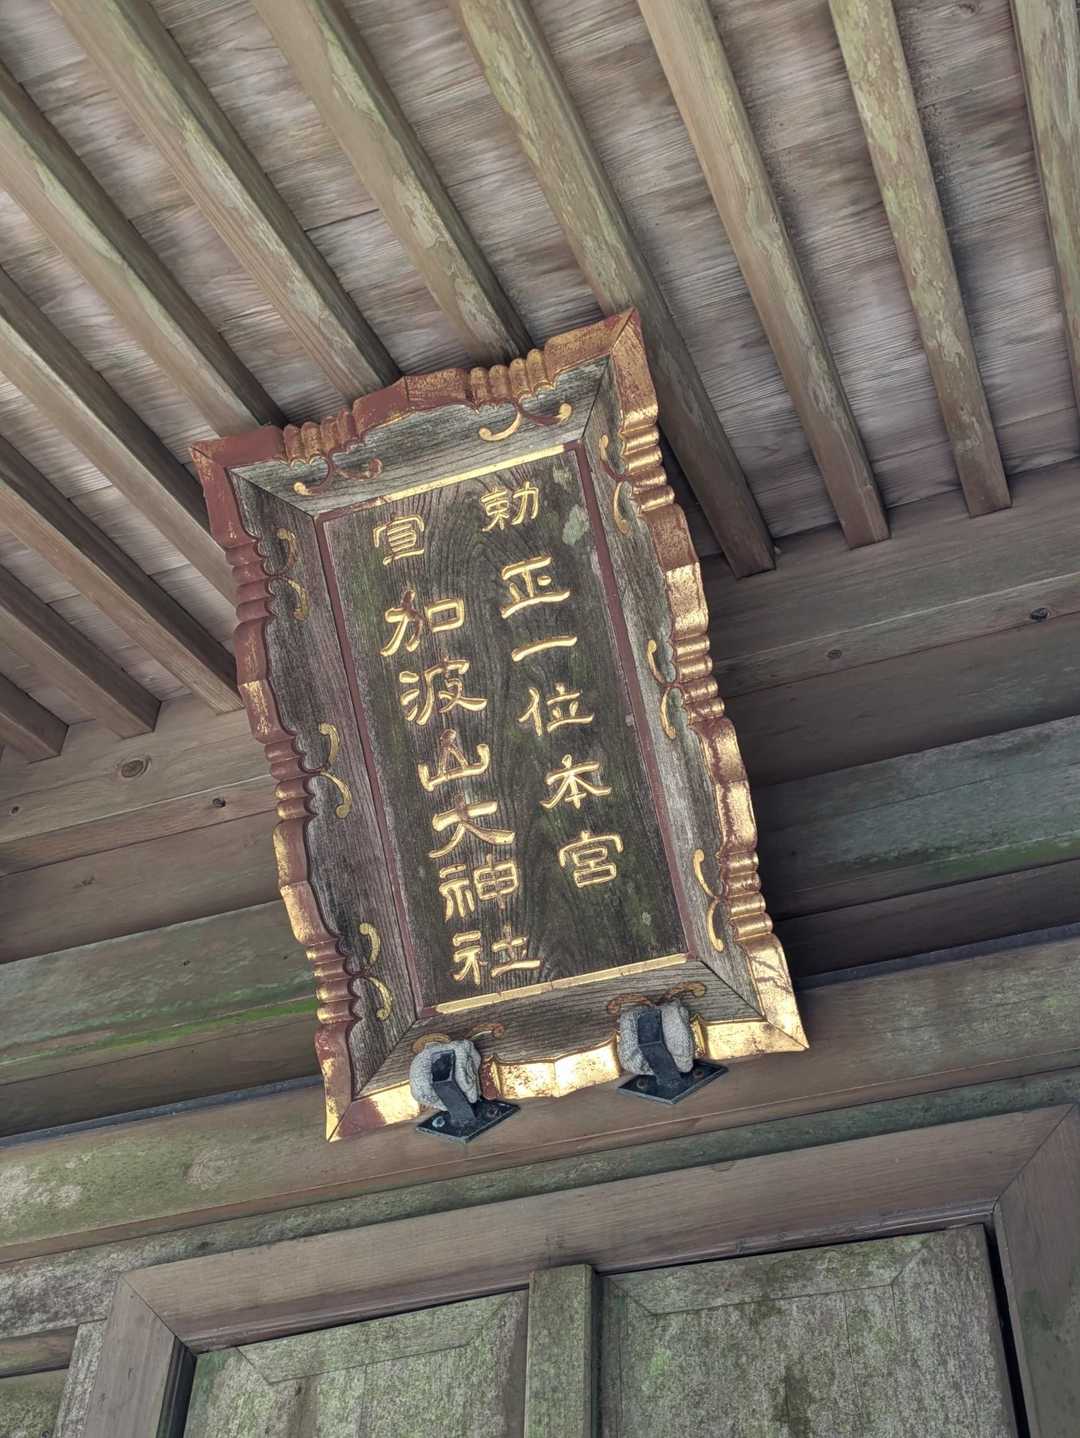 勅 正一位本宮
宣 加波山大神社